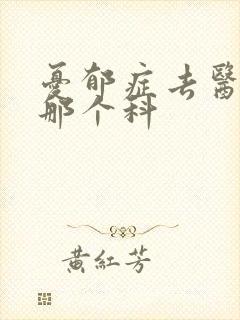 憂郁症去醫
那个科
黃紅芳